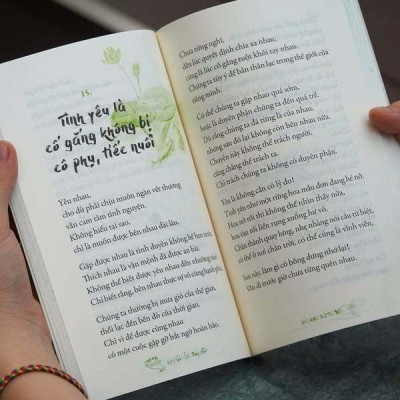 13.
Tình yêu là
cố gắng không bị
cô phụ, tiếc nuối
Yêu nhau,
cho dù phải chịu muôn ngàn vết thương
vẫn cam tâm tình nguyện.
Không hiểu tại sao,
chỉ là muốn được bên nhau dài lâu.
Gặp được nhau là tình duyên không hề hẹn
Thích nhau là vận mệnh đã được an bài.
Không thể biết được yêu nhau đến
Chỉ biết rằng, bên nhau thực sự vô cùng hạnh phúc
Chúng ta thường bị mưa gió của thế gian,
thổi lạc đến bên đò của thời gian.
Chỉ vì để được cùng nhau
có một cuộc gặp gỡ bất ngờ hoàn hảo.
Chưa từng nghĩ,
đến lúc quyết định chia xa nhau,
cũng là lúc cõng tuột khỏi tay nhau.
Chúng ta tùy ý để bản thân lạc trong thế giới của
riêng mình.
Có thể chúng ta gặp nhau quá sớm,
hoặc là duyên phận chúng ta đến quá trễ.
Dù rằng chúng ta từng là của nhau,
nhưng sau đó lại không còn bên nhau nữa.
Chuyện này không thể trách người,
càng chẳng thể trách ta.
Chỉ trách chúng ta không có duyên phận.
Yêu là không cần có lý do!
Tình yêu như một rừng hoa mẫu đơn đang hé nở
Hoa nở rồi thì không thể nhìn thấy nữa,
hoa tàn rồi liền rụng xuống hư vô.
Chân thành quay lưng, nhẹ nhàng nói câu từ biệt,
có thể ở nơi chân trời, có thể cũng là vĩnh viễn.
Sau này, làm gì có bỗng dưng nhớ lại!
Vẫn đi trước giờ chưa từng quên nhau.